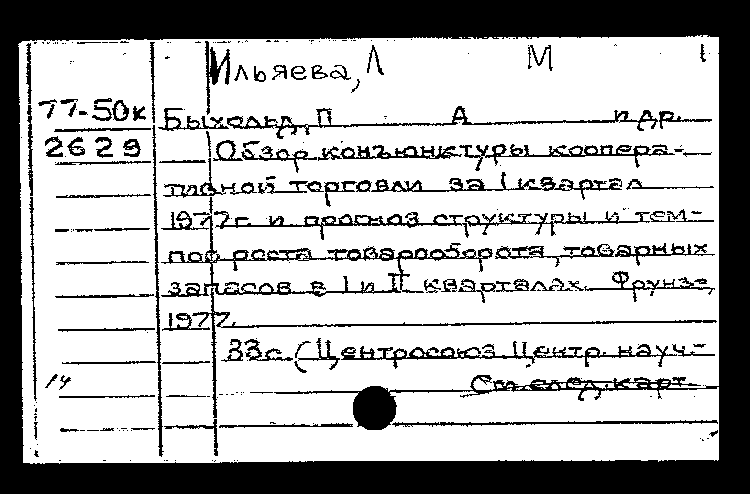 Ильяева, Л М 1
77-50к Быхольд, П А и др.
2629 Обзор конъюнктуры коопера-
тивной торговли за I квартал
1977г. и прогноз структуры и тем-
пов роста товарооборота, товарных
запасов в I и II кварталах. Фрунзе,
1977.
33с. (Центросоюз. Центр. науч.-
14 См. след. карт.